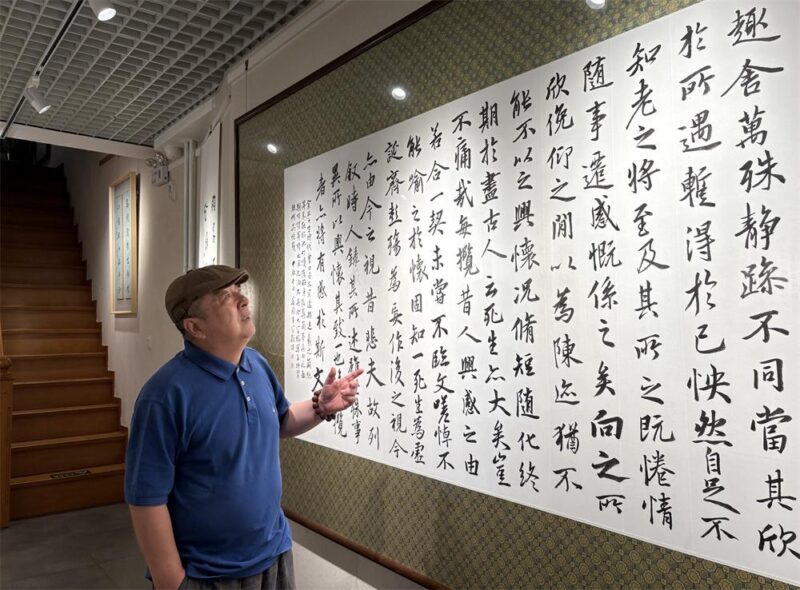 趣舍萬殊靜躁不同當其欣
於所遇暫得於己怏然自足不
知老之將至及其所之既惓情
隨事遷感慨係之矣向之所
欣俛仰之閒以為陳迹猶不
能不以之興懷況脩短隨化終
期於盡古人云死生亦大矣豈
不痛哉每攬昔人興感之由
若合一契未嘗不臨文嗟悼不
能喻之於懷固知一死生為虛
誕齊彭殤為妄作後之視今
亦由今之視昔悲夫故列
敘時人錄其所述雖殊事
異所以興懷其致一也攬
者亦將有感於斯文